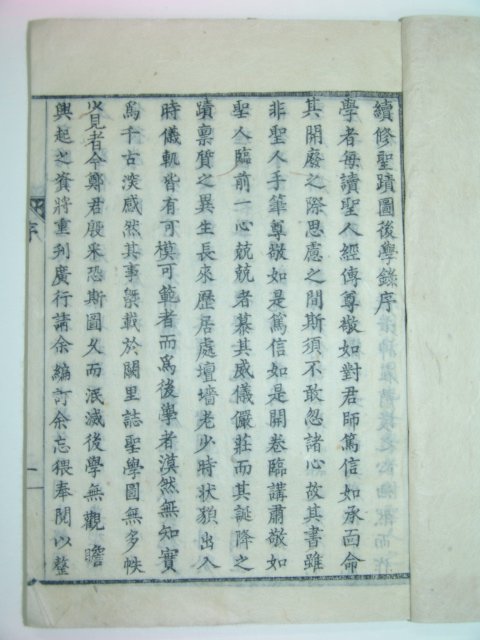 續修聖蹟圖後學錄序
學者每讀聖人經傳尊敬如對君師篤信如承面命
其開廢之際思慮之間斯須不敢忽諸心故其書雖
非聖人手筆尊敬如是篤信如是開卷臨講肅敬如
聖人臨前一心兢兢者慕其威儀儼莊而其誕降之
蹟稟質之異生長來歷居處壇墻老少時狀貌出入
時儀軌皆有可模可範者而爲後學者漠然無知實
爲千古淡感然其事蹟載於闕里誌聖學圖無多帙
必見者今鄭君殷采恐斯圖久而泯滅後學無觀瞻
興起之資將重刋廣行請余編訂余忘猥奉閱以整
序